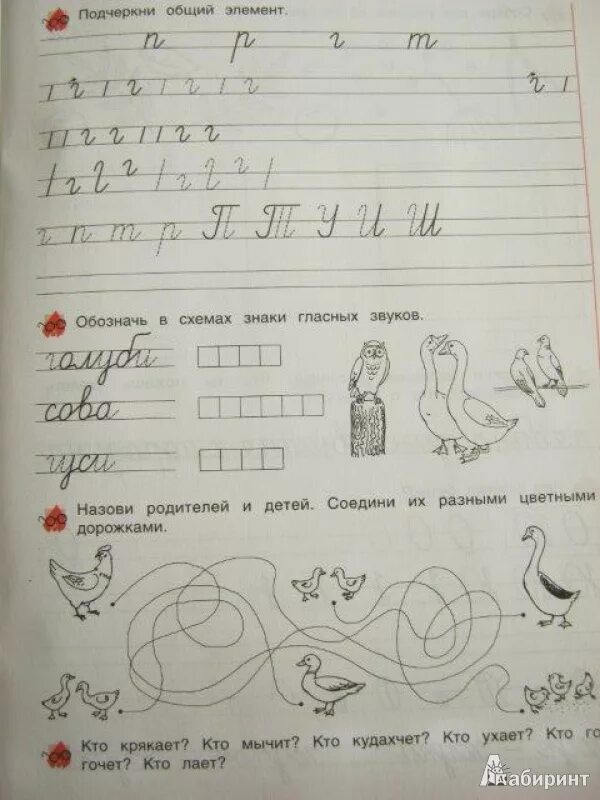 Подчеркни общий элемент.
п р г т
г г г г г
г г г г
г г г г
г п т р П Т У И Ш
Обозначь в схемах знаки гласных звуков.
голуби
сова
гуси
Назови родителей и детей. Соедини их разными цветными
дорожками.
Кто крякает? Кто мычит? Кто кудахчет? Кто ухает? Кто го
гочет? Кто лает?
Лабиринт